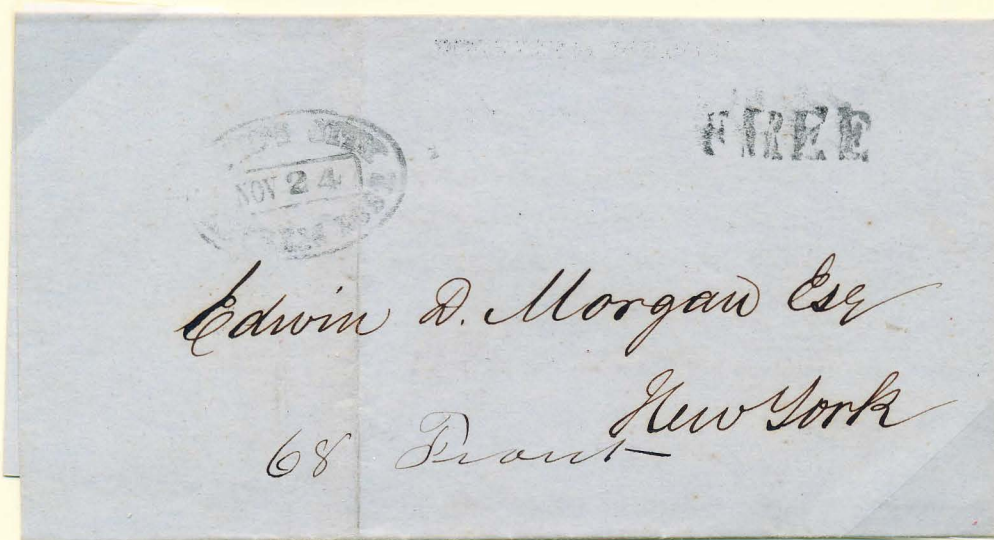 FREE
NOV 24
Edwin D. Morgan Esq
New York
68 Front